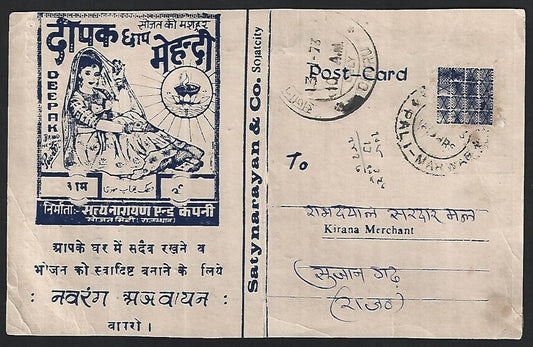 सोजत की मशहूर
दीपक छाप
मेहन्दी
DEEPAK
निर्माता:- सत्यनारायण एन्ड कंपनी
सोजत सिटी (राजस्थान)
आपके घर में सदैव रखने व
भोजन को स्वादिष्ट बनाने के लिये
: नवरंग अजवायन :
वापरो।
Satynarayan & Co. Sojatcity
Post-Card
PALI-MARWAR
To
रामदयाल सरदार मल
Kirana Merchant
सुजानगढ़
(राज०)